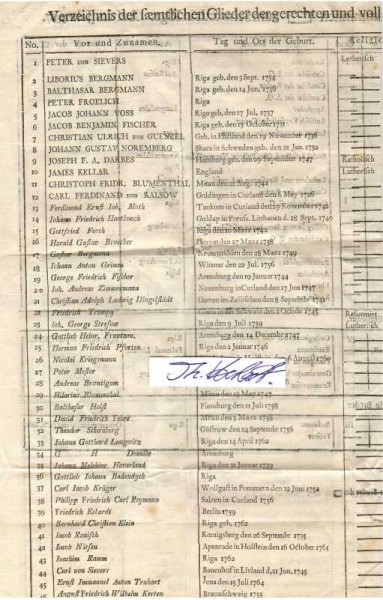 Verzeichnis der sæmtlichen Glieder der gerechten und voll
No. Vor und Zunamen. Tag und Ort der Geburt.
1 PETER von SIEVERS Lutherisch
2 LIBORIUS BERGMANN Riga geb. den 3 Sept. 1754
3 BALTHASAR BERGMANN Riga geb. den 14 Jun. 1736
4 PETER FROELICH Riga
5 JACOB JOHANN VOSS Riga geb. den 17 Jul. 1737
6 JACOB BENJAMIN FISCHER Riga geb. den 13 October 1731
7 CHRISTIAN ULRICH von Geb. in Livland den 19 November 1736
8 JOHANN GUSTAV NOREMBERG Skara in Schweden geb. den 21 Jan. 1732
9 JOSEPH F. A. DARBES Hamburg geb. den 29 September 1747 Katholisch
10 JAMES KELLAR England Lutherisch
11 CHRISTOPH FRIDR. BLUMENTHAL Mitau den 21 Aug. 1741
12 CARL FERDINAND von KALSOW Goldingen in Curland den 6 May 1726
13 Ferdinand Ernst Joh. Tuckum in Curland den 9 November 1742
14 Johann Friedrich Hartknoch Goldap in Preuss. Litthauen d. 28 Sept. 1740
15 Gottfried Riga den 10 März 1742
16 Harald Gustav Brencher Dorpat den 27 März 1758
17 Gustav Bergmann Neuermühlen den 28 März 1749
18 Johann Anton Grimm Wismar den 22 Jul. 1756
19 George Friedrich Fischer Arensburg den 19 Januar 1744
20 Joh. Andreas Zimmermann Neuenburg in Curland den 27 Jun 1747
21 Christian Adolph Ludwig Dingelstädt den 8 Septemb. 1741
22 Friedrich den 2 October 1745 Reformirt
23 Joh. George Stresow Riga den 9 Juli 1759 Lutherisch
24 Gottlieb Heinr. Frantzen, Arensburg den 14 December 1747
25 Herman Friedrich Pforten Riga den 2 Januar 1746
26 Nicolai Kriegsmann 6 April 1756
27 Peter Meister
28 Andreas Bræutigam
29 Hilarius Blumenthal Mitau den 19 May 1747
30 Balthasar Holst Flensburg den 11 Juli 1758
31 David Friedrich Fehre Mitau den 5 März 1758
32 Theodor Schwaberg Güstrow den 24 Septemb 1756
33 Johann Gotthard Languitz Riga den 14 April 1762
34 G H Arensburg
35 Johann Melchior Haverland Riga den 31 Januar 1759
36 Gottlieb Johann Badendyck Riga
37 Carl Jacob Krüger Wolfgast in Pommern den 22 Juni 1752
38 Philipp Friedrich Carl Roymann Salzen in Curland 1756
39 Friedrich Eckardt Berlin 1759
40 Bernhard Christian Klein Riga geb. 1762
41 Jacob Ranisch Kœnigsberg den 26 Septembr 1735
42 Jacob Niessen Apenrade in Holstein den 16 October 1761
43 Joachim Ramm Riga den 1742
44 Carl von Sievers Bauenhof in Livland, d. 21 Jun. 1745
45 Ernst Immanuel Anton Truhart Jena den 15 Juli 1764
46 August Friedrich Wilhelm Kerten Braunschweig 1753